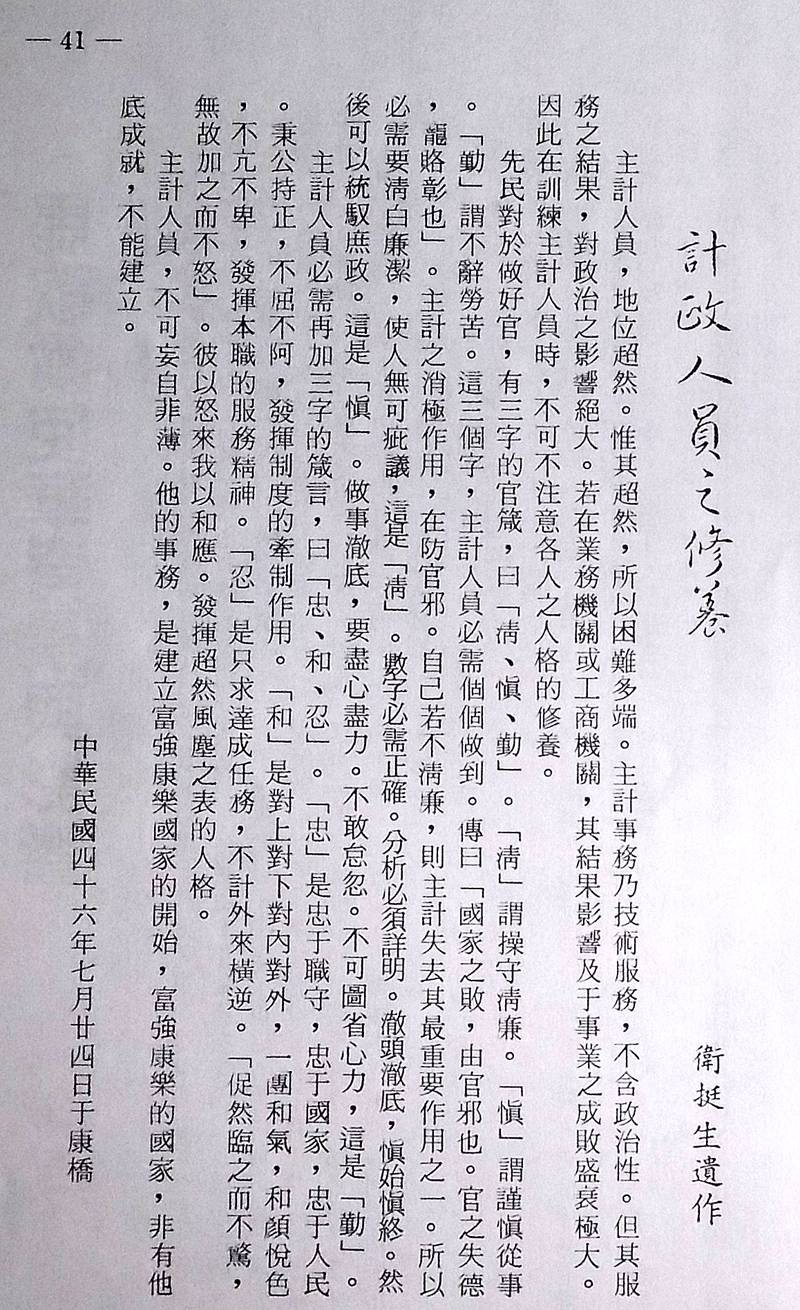 — 41 —
計政人員之修養
衛挺生遺作
主計人員，地位超然。惟其超然，所以困難多端。主計事務乃技術服務，不含政治性。但其服
務之結果，對政治之影響絕大。若在業務機關或工商機關，其結果影響及于事業之成敗盛衰極大。
因此在訓練主計人員時，不可不注意各人之人格的修養。
先民對於做好官，有三字的官箴，曰「淸、愼、勤」。「淸」謂操守淸廉。「愼」謂謹愼從事
。「勤」謂不辭勞苦。這三個字，主計人員必需個個做到。傳曰「國家之敗，由官邪也。官之失德
，寵賂彰也」。主計之消極作用，在防官邪。自己若不淸廉，則主計失去其最重要作用之一。所以
必需要淸白廉潔，使人無可疵議，這是「淸」。數字必需正確。分析必須詳明。澈頭澈底，愼始愼終。然
後可以統馭庶政。這是「愼」。做事澈底，要盡心盡力。不敢怠忽。不可圖省心力，這是「勤」。
主計人員必需再加三字的箴言，曰「忠、和、忍」。「忠」是忠于職守，忠于國家，忠于人民
。秉公持正，不屈不阿，發揮制度的牽制作用。「和」是對上對下對內對外，一團和氣，和顏悅色
，不亢不卑，發揮本職的服務精神。「忍」是只求達成任務，不計外來橫逆。「促然臨之而不驚，
無故加之而不怒」。彼以怒來我以和應。發揮超然風塵之表的人格。
主計人員，不可妄自非薄。他的事務，是建立富強康樂國家的開始，富強康樂的國家，非有他
底成就，不能建立。
中華民國四十六年七月廿四日于康橋